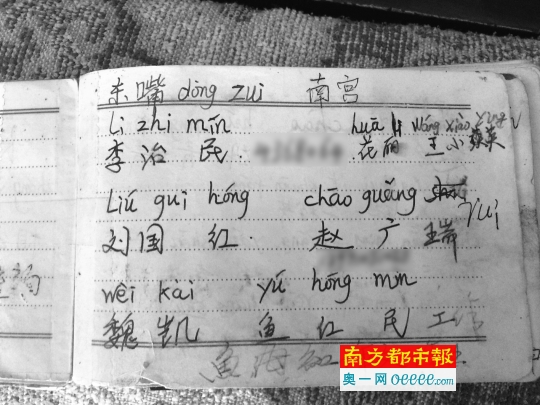 东嘴 dōng zuǐ 南宫
li zhi mín huā li Wáng xiǎo
李治民 花丽 王小英
Liú gui hóng chāo guǎng ruì
刘国红 赵广瑞
wēi kǎi yú hóng mín
魏凯 鱼红民
鱼
南方都市報
奥一网 oeeee.com